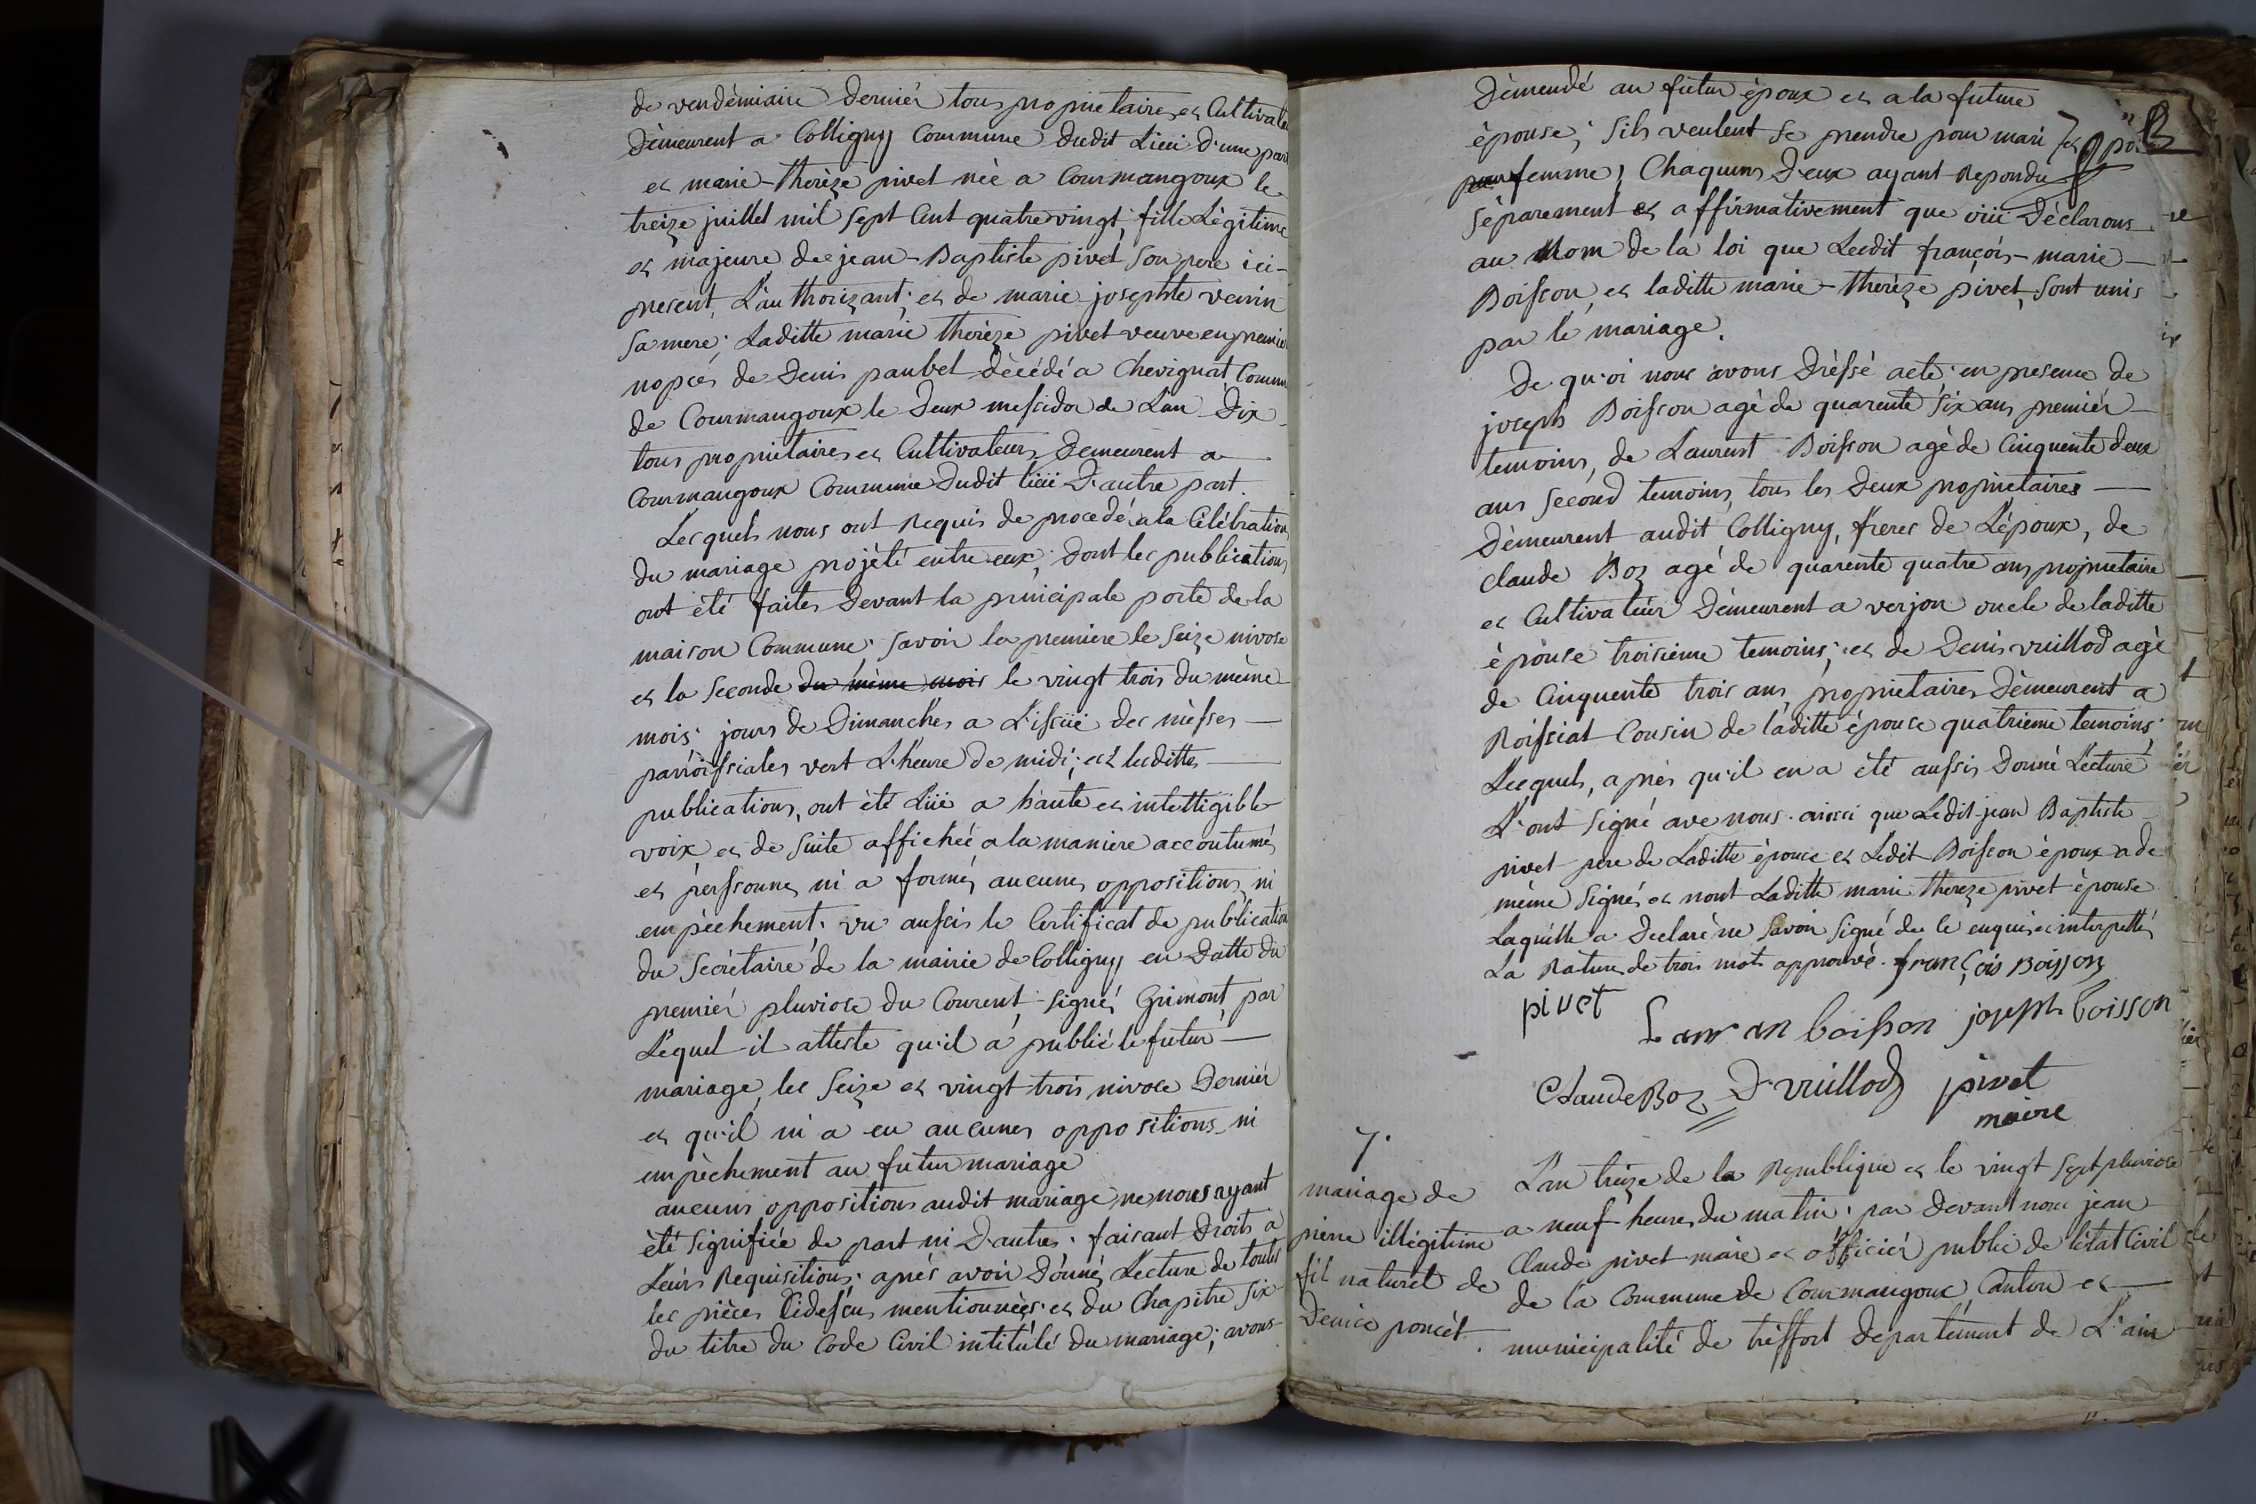 de vendèmiaire dernièr tous proprietaires et Cultivate
Dèmeurent a Colligny Commune dudit Lieu d'une part
et marie-therèze pivet nèe a Courmangoux le
treize juillet mil sept Cent quatrevingt, fille Lègitime
et majeure de jean-Baptiste pivet Son pere ici-
present, L'authorizant; et de marie josephte
Sa mere; Laditte marie therèze pivet veuve en premier
nopces de Denis paubel dècèdé a Chevignat Commune
de Courmangoux le Deux messidor de L'an Dix
tous proprietaires et Cultivateurs Demeurent a
Courmangoux Commune dudit liiü D'autre part.
Lesquels nous ont Requis de procedé a la Célébration
du mariage projèté entre eux; dont les publications
ont èté faites Devant la principale porte de la
maison Commune. Savoir la premiere le Seize nivose
et la Seconde du même mois le vingt trois du même
mois. jours de Dimanches a L'issüe des mèsses
parroissiales vert L'heure de midi; et lesdittes
publications, ont èté Lüe a haute et intelligible
voix et de Suite affichée a la maniere accoutumé
et perssonne ni a formé aucunes oppositions, ni
empèchement. vu aussis le Certificat de publication
du Secrètaire de la mairie de Colligny en Datte du
premièr pluviose du Courent, Signé, Grimont, par
Lèquel il atteste qu'il a publié le futur
mariage, les Seize et vingt-trois nivose Dernièr
et qu'il ni a eu aucunes oppositions ni
empèchement au futur mariage
aucuns oppositions audit mariage ne nous ayant
èté Signifiée de part ni D'autre. faisant Droits a
Leurs Requisitions. aprés avoir Dónné Lecture de toutes
les pièces Cidessus mentionnèes. et du Chapitre Six
du titre du Code Civil intitulé du mariage; avons
Dèmendé au futur èpoux et a la future
èpouse; Sils veulent Se prendre pour mari et po
pour femme, Chaquuns D'eux ayant Repondu
Séparement et affirmativement que oüii Dèclarons
au Nom de la loi que Ledit françois-marie
Boisson, et laditte marie-therèze pivet, Sont unis
par le mariage.
De qu'oi nous avons Drèssé acte en presence de
joseph Boisson agé de quarente Six ans premièr
temoins, de Laurent Boisson agè de Cinquente deux
ans Second temoins, tous les Deux proprietaires
Dèmeurent audit Colligny, frerec de L'époux, de
Claude Boz agé de quarente quatre ans proprietaire
et Cultivateur Dèmeurent a verjon oncle de laditte
èpouse troisième temoins; et de Denis vuillod agè
de Cinquente trois ans proprietaires Dèmeurent a
Roissiat Cousin de laditte épouse quatrième temoins;
Lecquels, aprés qu'il en a èté aussis Donné Lecture
L'ont Signé ave nous. ainsi que Ledit jean Baptiste
pivet pere de Laditte épouse et Ledit Boisson èpoux a de
même Signé, et nont Laditte marie thereze pivet èpouse
Laquélle a Declaré ne Savoir Signé de ce enquise interpellé
La Rature de trois mots approuvé. françois Boisson
pivet
Lauran boisson joseph boisson
Claude Boz D vuillod pivet
maire
7.
mariage de
pierre illégitime
fil naturel de
Denice poncèt.
L'an treize de la Republique et le vingt Sept pluviose
a neuf heures du matin. par Devant nous jean
Claude pivet maire et officiér public de l'ètat Civil
de la Commune de Courmangoux, Canton et
municipalité de trèffort Dèpartèment de L'ain